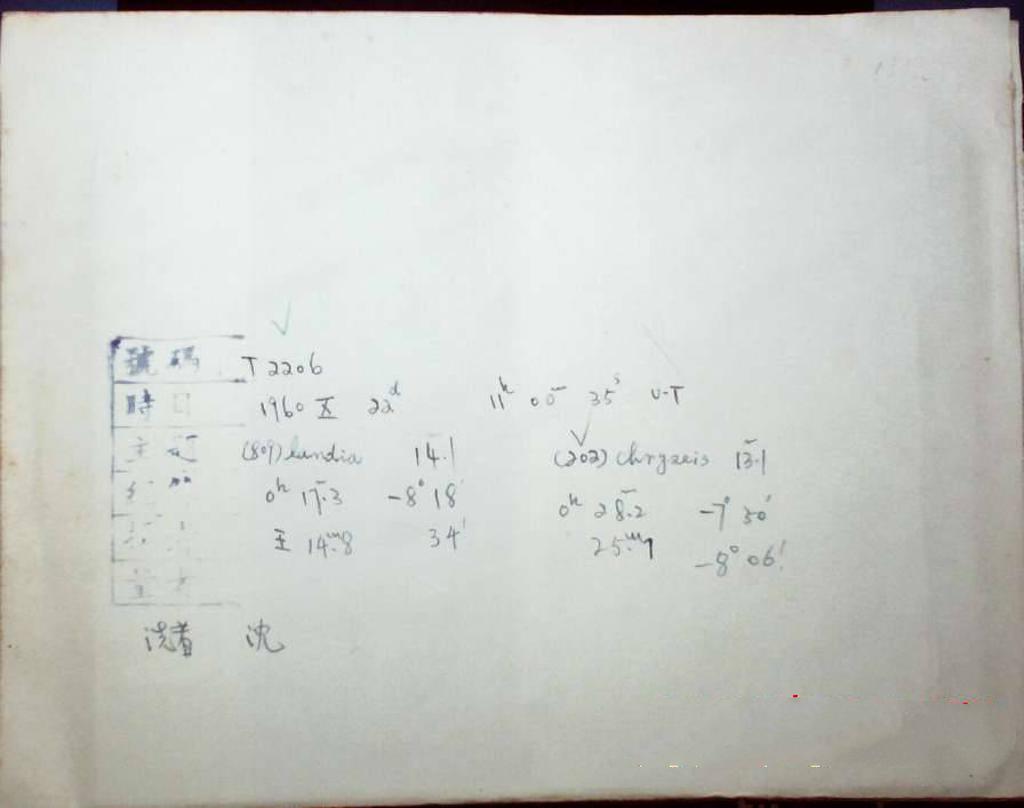 號碼 T 2206
時日 1960 X 22d 11h 00m 35s U.T
(809) lundia 14.1 (202) Chryseis 13.1
0h 17m.3 -8° 18' 0h 28m.2 -7° 50'
至 14m.8 34' 25m.7 -8° 06'
洗者 沈